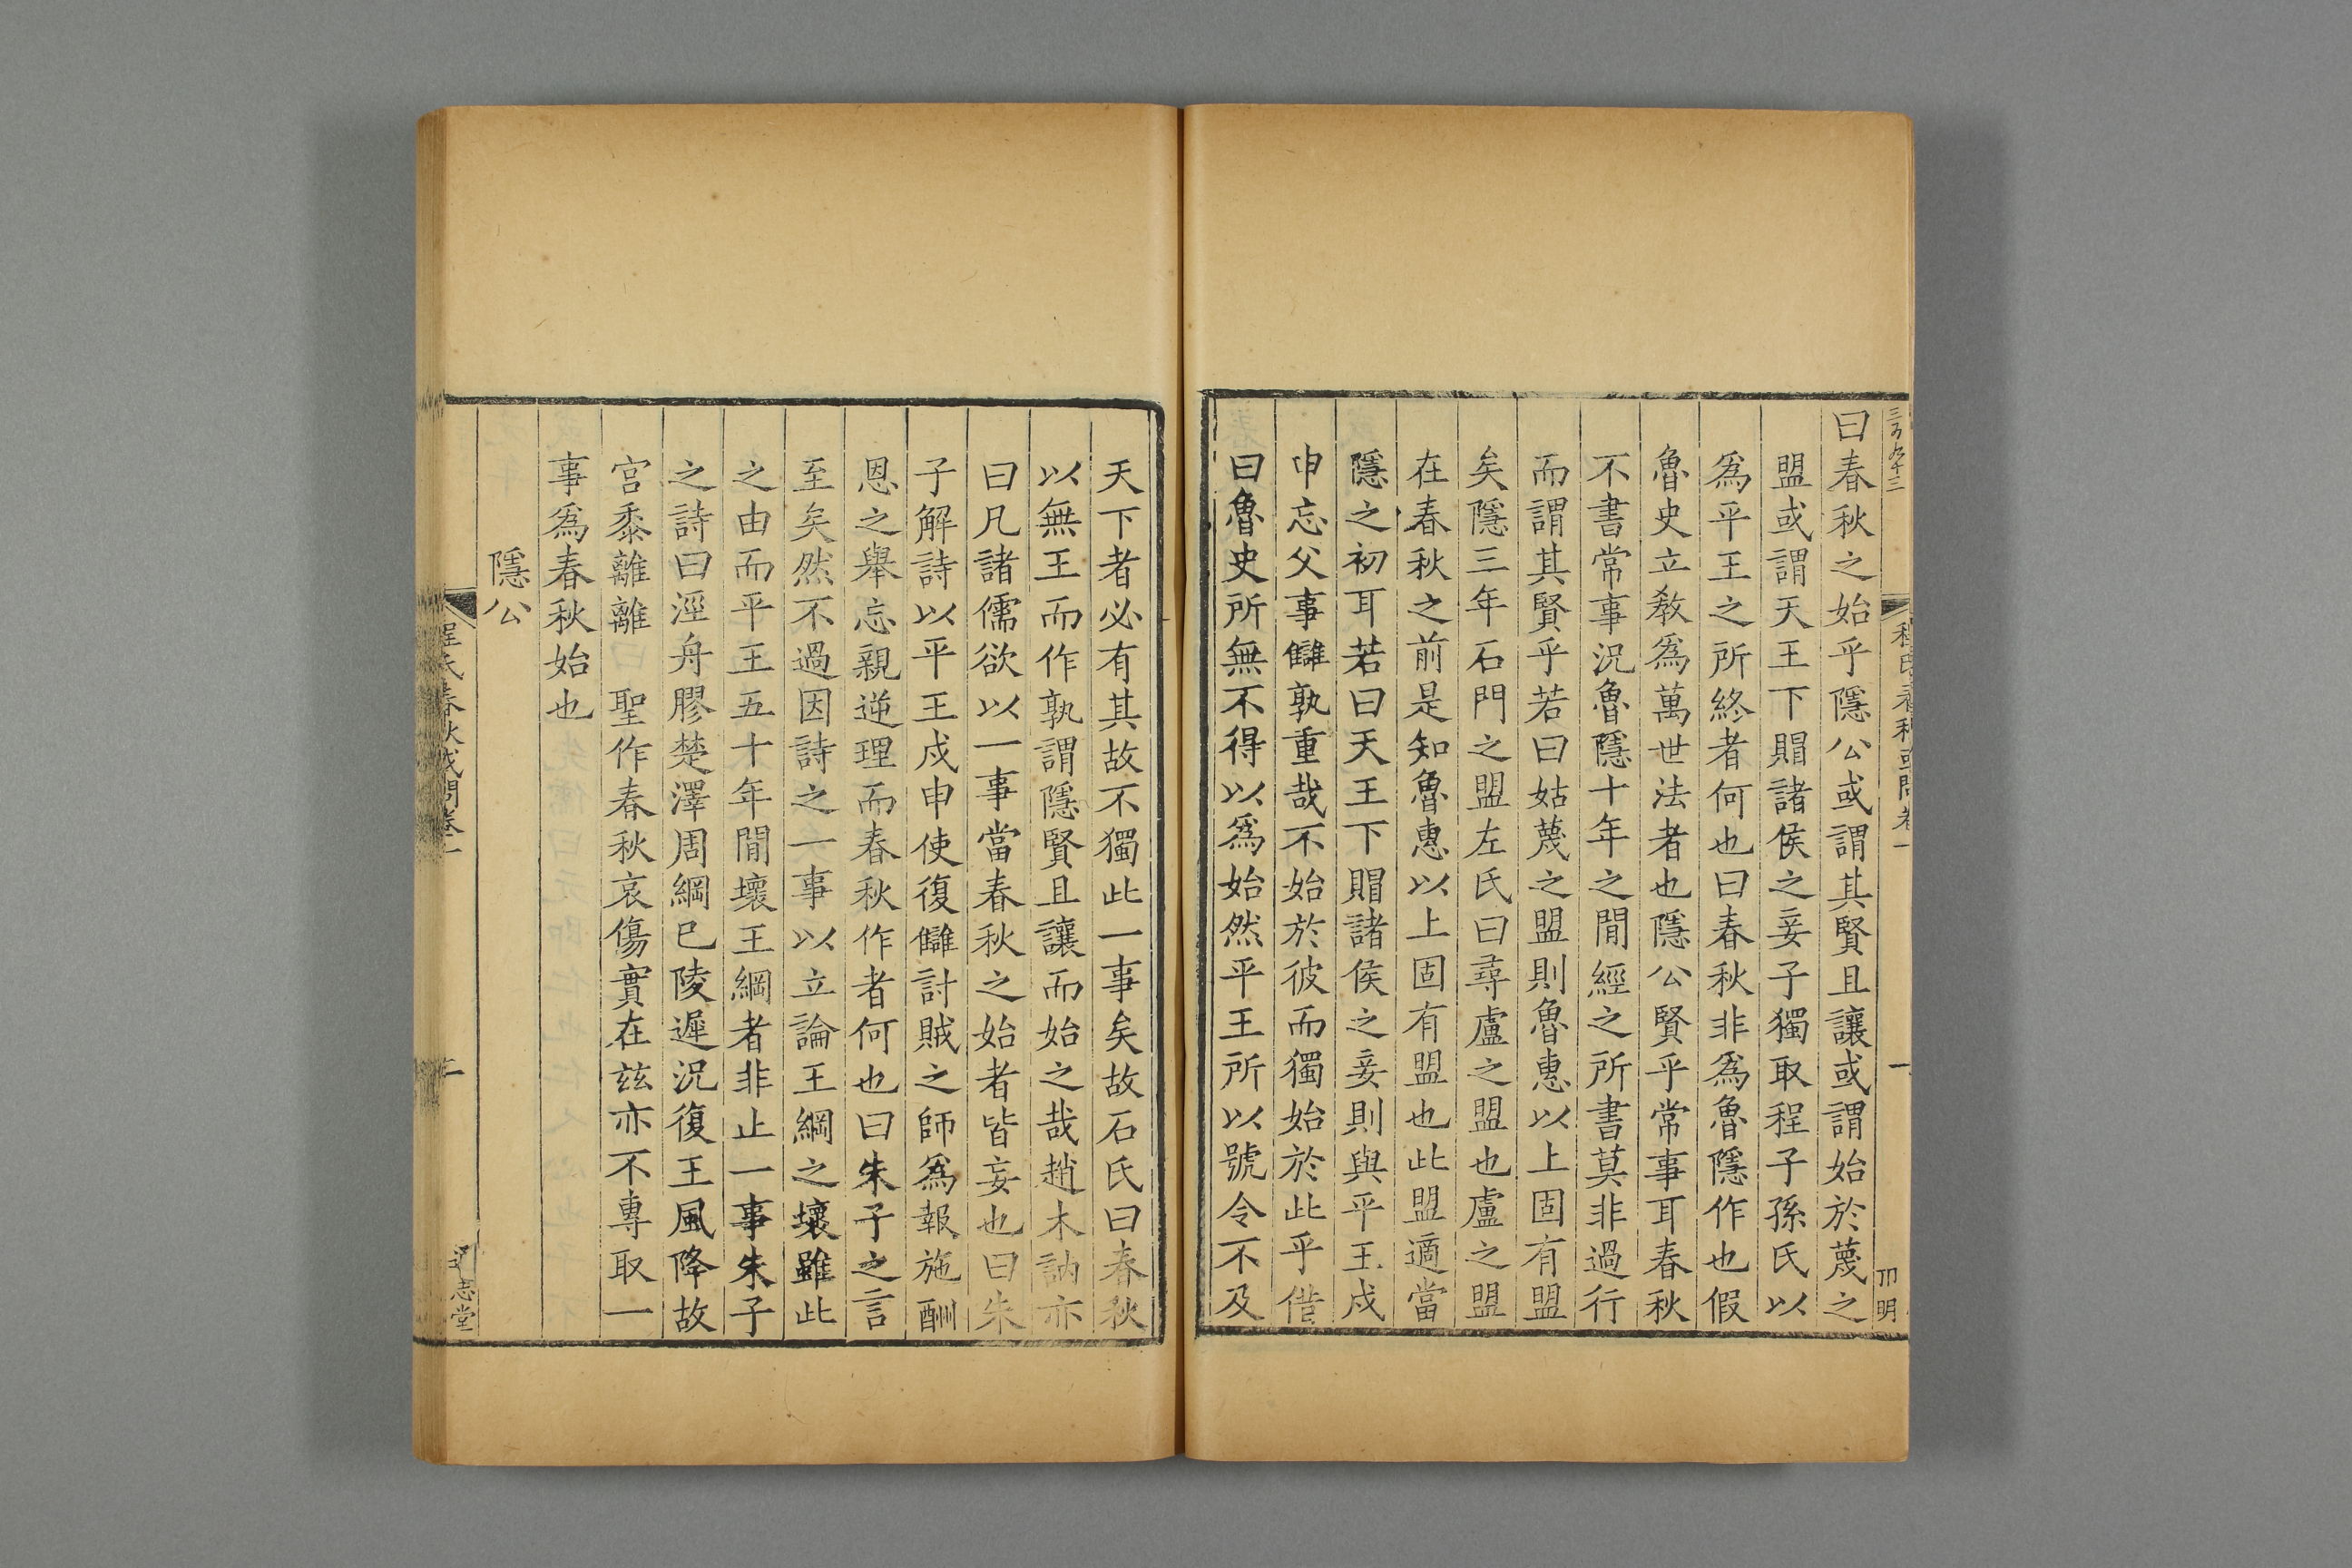 曰春秋之始乎隱公或謂其賢且讓或謂始於蔑之
盟或謂天王下賵諸侯之妾子獨取程子孫氏以
爲平王之所終者何也曰春秋非爲魯隱作也假
魯史立敎爲萬世法者也隱公賢乎常事耳春秋
不書常事況魯隱十年之間經之所書莫非過行
而謂其賢乎若曰姑蔑之盟則魯惠以上固有盟
矣隱三年石門之盟左氏曰尋盧之盟也盧之盟
在春秋之前是知魯惠以上固有盟也此盟適當
隱之初耳若曰天王下賵諸侯之妾則與平王戍
申忘父事讎孰重哉不始於彼而獨始於此乎借
曰魯史所無不得以爲始然平王所以號令不及
天下者必有其故不獨此一事矣故石氏曰春秋
以無王而作孰謂隱賢且讓而始之哉趙木訥亦
曰凡諸儒欲以一事當春秋之始者皆妄也曰朱
子解詩以平王戍申使復讎討賊之師爲報施酬
恩之舉忘親逆理而春秋作者何也曰朱子之言
至矣然不過因詩之一事以立論王綱之壞雖此
之由而平王五十年間壞王綱者非止一事朱子
之詩曰涇舟膠楚澤周綱已陵遲況復王風降故
宮黍離離 聖作春秋哀傷實在兹亦不專取一
事爲春秋始也
隱公
程氏春秋或問卷一
二
通志堂
程氏春秋或問卷一
一